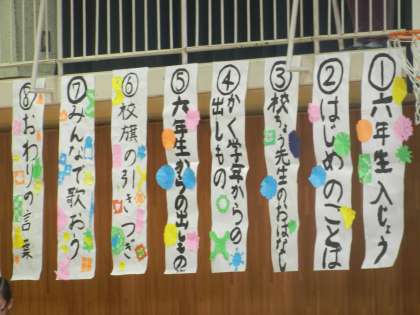 ①六年生入じょう
②はじめのことば
③校ちょう先生のおはなし
④かく学年からの
出しもの
⑤六年生からの出しもの
⑥校旗の引きつぎ
⑦みんなで歌おう
⑧おわりの言葉